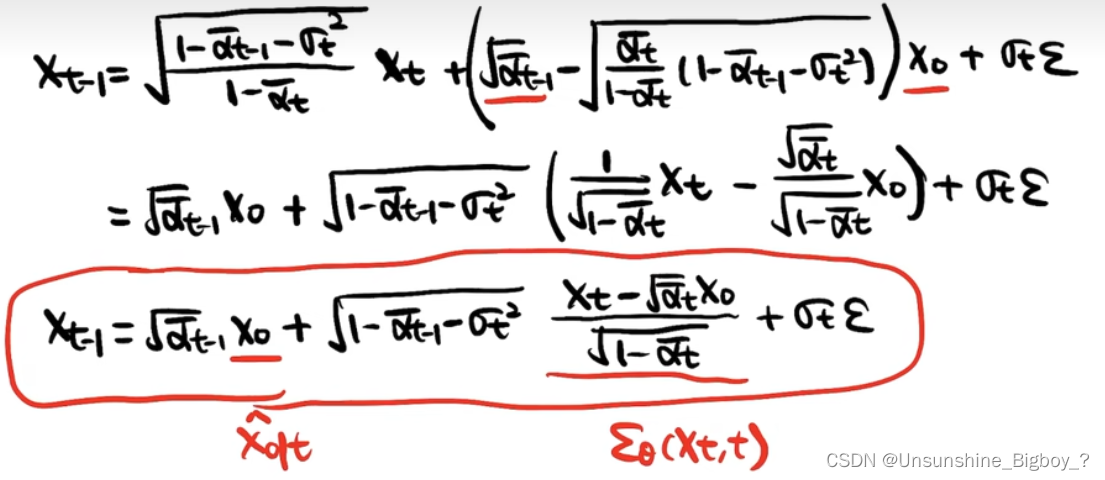 x_{t-1} = \sqrt{\frac{1-\bar{α}_{t-1}-σ_t^2}{1-\bar{α}_t}} x_t + (\sqrt{\bar{α}_{t-1}} - \sqrt{\frac{\bar{α}_t}{1-\bar{α}_t}(1-\bar{α}_{t-1}-σ_t^2)}) x_0 + σ_t ε
= \sqrt{\bar{α}_{t-1}} x_0 + \sqrt{1-\bar{α}_{t-1}-σ_t^2} (\frac{1}{\sqrt{1-\bar{α}_t}} x_t - \frac{\sqrt{\bar{α}_t}}{\sqrt{1-\bar{α}_t}} x_0) + σ_t ε
x_{t-1} = \sqrt{\bar{α}_{t-1}} x_0 + \sqrt{1-\bar{α}_{t-1}-σ_t^2} \frac{x_t - \sqrt{\bar{α}_t} x_0}{\sqrt{1-\bar{α}_t}} + σ_t ε
\hat{x}_{0|t} ε_θ(x_t, t)
CSDN @Unsunshine_Bigboy_?